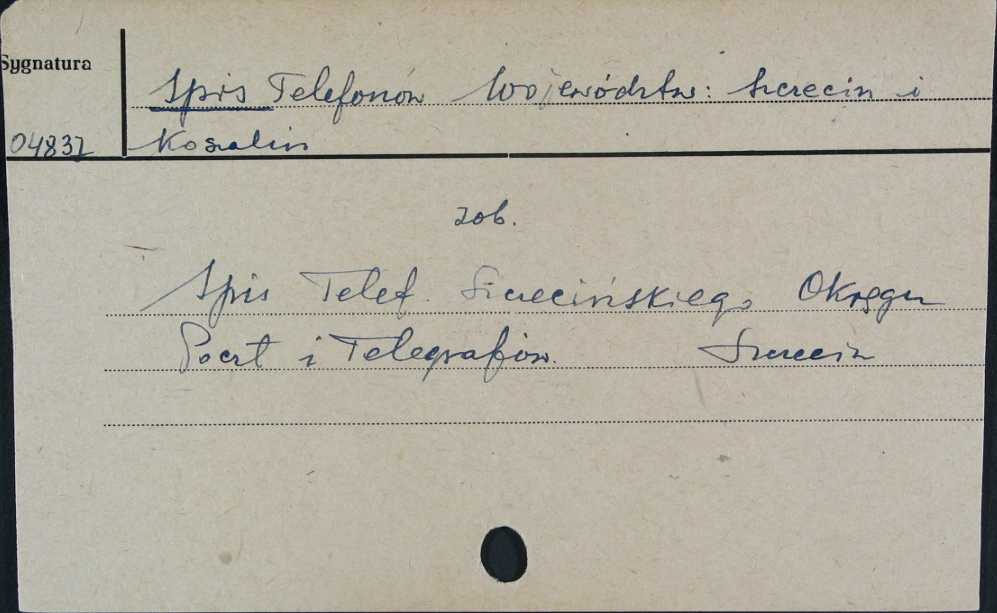 Sygnatura
Spis Telefonów Województw: Szczecin i
04832 Koszalin
zob.
Spis Telef. Szczecińskiego Okręgu
Poczt i Telegrafów. Szczecin